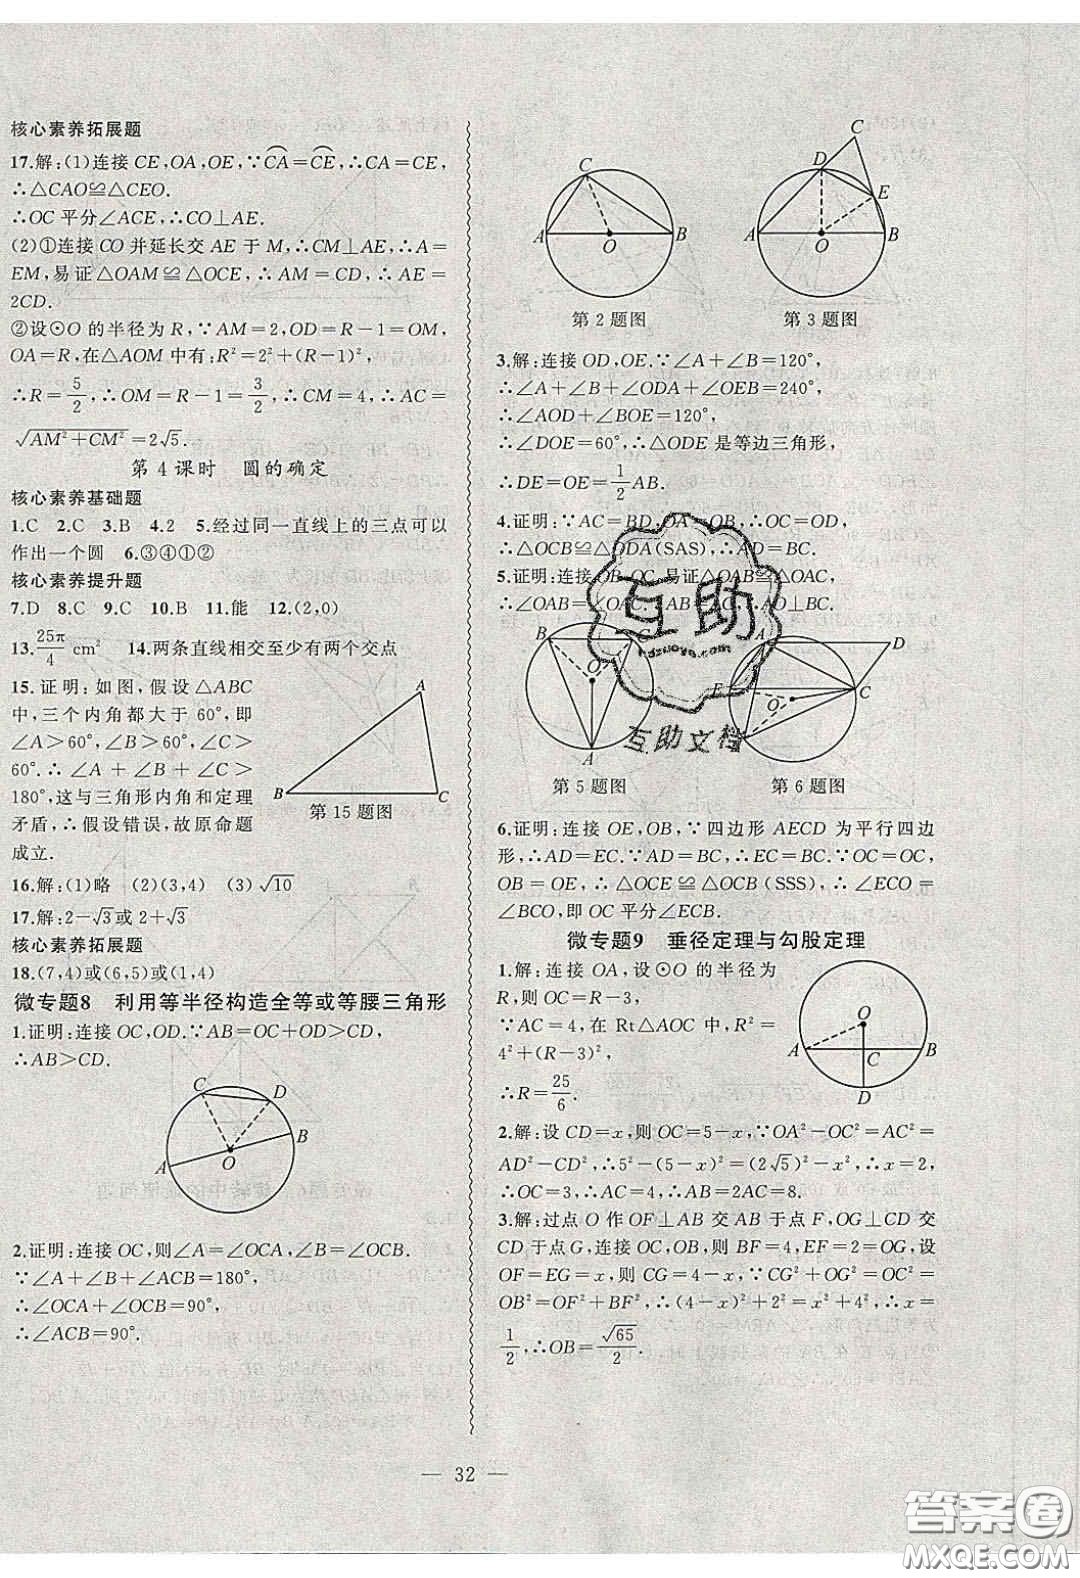 核心素养拓展题
17.解:(1)连接 CE,OA,OE,∵CA=CE,∴CA=CE,
∴△CAO≌△CEO.
∴OC 平分∠ACE,∴CO⊥AE.
(2)①连接 CO 并延长交 AE 于 M,∴CM⊥AE,∴A=
EM,易证△OAM≌△OCE,∴AM=CD,∴AE=
2CD.
②设⊙O 的半径为 R,∵AM=2,OD=R-1=OM,
OA=R,在△AOM 中有:R²=2²+(R-1)²,
∴R=5/2,∴OM=R-1=3/2,∴CM=4,∴AC=
√(AM²+CM²)=2√5.
第 4 课时 圆的确定
核心素养基础题
1.C 2.C 3.B 4.2 5.经过同一直线上的三点可以
作出一个圆 6.③④①②
核心素养提升题
7.D 8.C 9.C 10.B 11.能 12.(2,0)
13.25π/4 cm² 14.两条直线相交至少有两个交点
15.证明:如图,假设△ABC
中,三个内角都大于 60°,即
∠A>60°,∠B>60°,∠C>
60°.∴∠A+∠B+∠C>
180°,这与三角形内角和定理
矛盾,∴假设错误,故原命题
成立.
A
B
C
第 15 题图
16.解:(1)略 (2)(3,4) (3)√10
17.解:2-√3或 2+√3
核心素养拓展题
18.(7,4)或(6,5)或(1,4)
微专题8 利用等半径构造全等或等腰三角形
1.证明:连接 OC,OD.∵AB=OC+OD>CD,
∴AB>CD.
C
D
B
A
O
2.证明:连接 OC,则∠A=∠OCA,∠B=∠OCB.
∵∠A+∠B+∠ACB=180°,
∴∠OCA+∠OCB=90°,
∴∠ACB=90°.
C
A
B
O
第 2 题图
C
D
E
A
B
O
第 3 题图
3.解:连接 OD,OE.∵∠A+∠B=120°,
∴∠A+∠B+∠ODA+∠OEB=240°,
∴∠AOD+∠BOE=120°,
∴∠DOE=60°,∴△ODE 是等边三角形,
∴DE=OE=1/2AB.
4.证明:∵AC=BD,OA=OB,∴OC=OD,
∴△OCB≌△ODA(SAS),∴AD=BC.
5.证明:连接 OB,OC,易证△OAB≌△OAC,
∴∠OAB=∠OAC.∵AB=AC,∴AO⊥BC.
B
C
O
A
第 5 题图
A
D
E
C
O
第 6 题图
6.证明:连接 OE,OB,∵四边形 AECD 为平行四边
形,∴AD=EC.∵AD=BC,∴EC=BC.∵OC=OC,
OB=OE,∴△OCE≌△OCB(SSS),∴∠ECO=
∠BCO,即 OC 平分∠ECB.
微专题9 垂径定理与勾股定理
1.解:连接 OA,设⊙O 的半径为
R,则 OC=R-3,
∵AC=4,在 Rt△AOC 中,R²=
4²+(R-3)²,
∴R=25/6.
O
A
C
B
D
2.解:设 CD=x,则 OC=5-x,∵OA²-OC²=AC²=
AD²-CD²,∴5²-(5-x)²=(2√5)²-x²,∴x=2,
∴OC=3,∴AC=4,∴AB=2AC=8.
3.解:过点 O 作 OF⊥AB 交 AB 于点 F,OG⊥CD 交
CD 于点 G,连接 OC,OB,则 BF=4,EF=2=OG,设
OF=EG=x,则 CG=4-x,∵CG²+OG²=OC²=
OB²=OF²+BF²,∴(4-x)²+2²=x²+4²,∴x=
1/2,∴OB=√65/2.
互助
hdzuoye.com
互助文档
— 32 —
答案圈
MXQE.COM